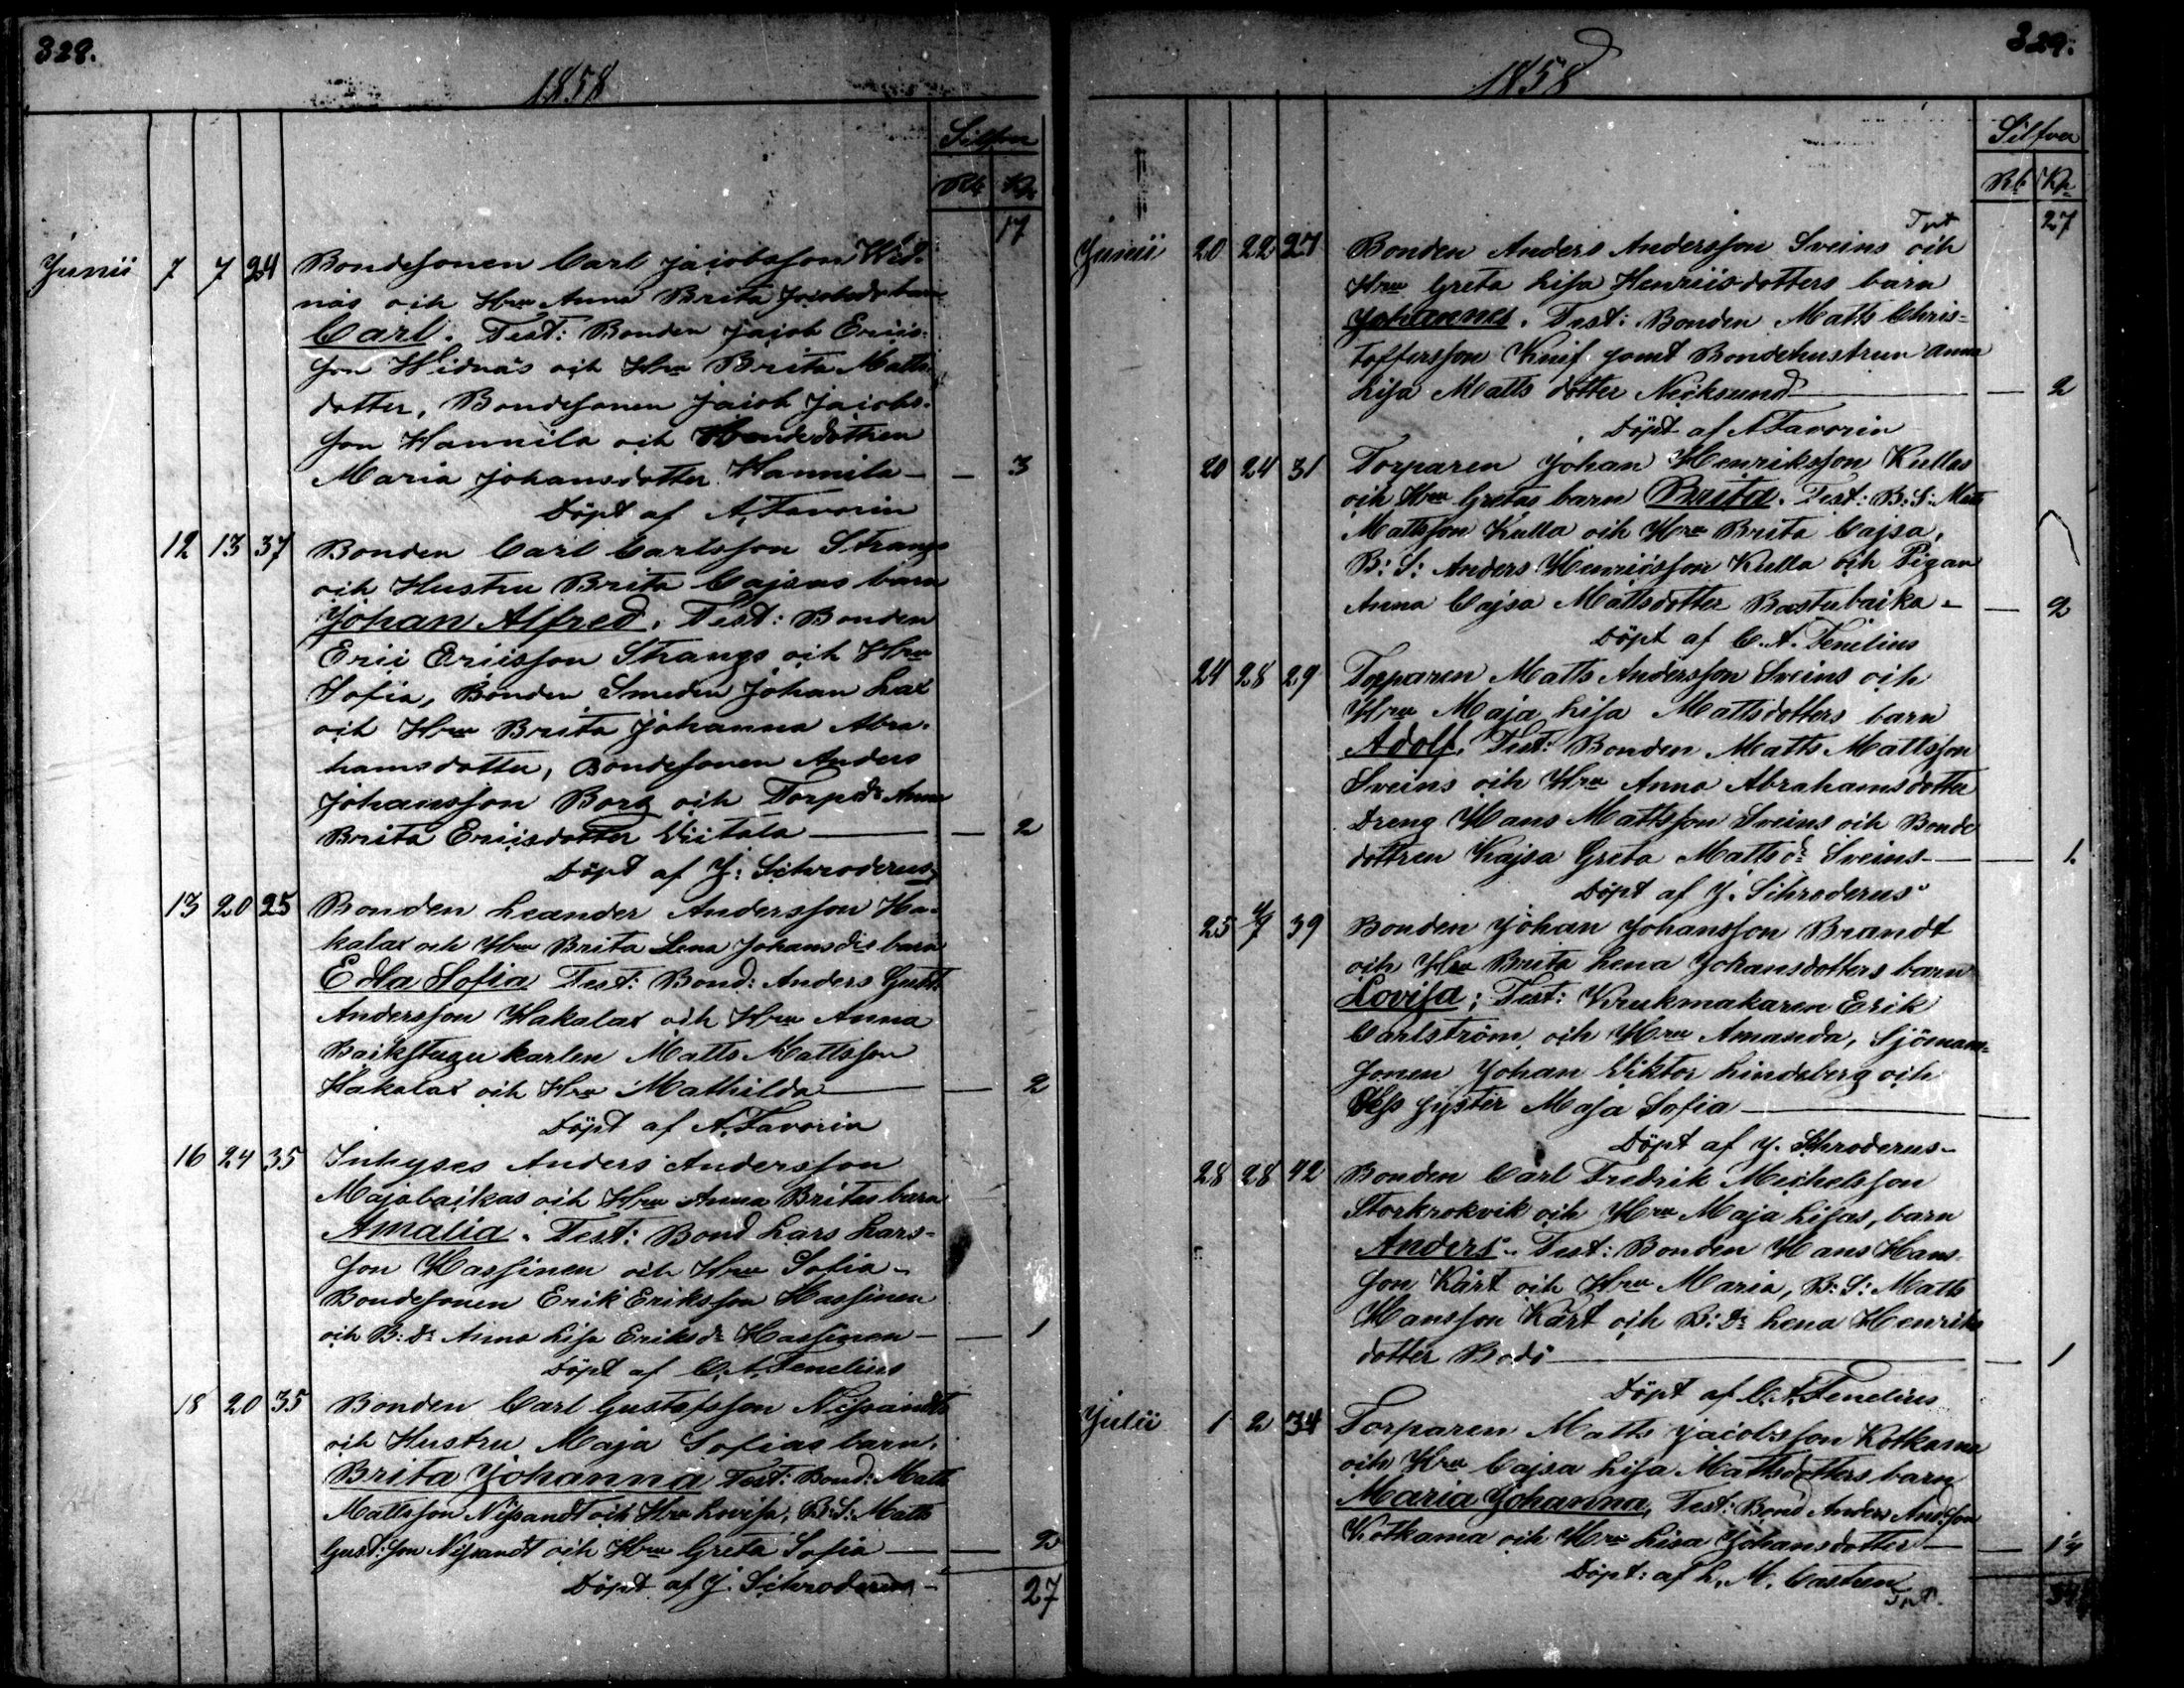 328.
1858
Silfver
Rb Kp
17
Junii 7 7 24 Bondesonen Carl Jacobsson Wid-
näs och Hru Anna Brita Jacobsds barn
Carl. Test: Bonden Jacob Erics-
son Widnäs och Hru Brita Matts-
dotter, Bondesonen Jacob Jacobs-
son Hannila och Bondedottren
Maria Johansdotter Hannila — — 3
Döpt af A. Favorin
12 13 37 Bonden Carl Carlsson Strangs
och Hustru Brita Cajsas barn
Johan Alfred. Test: Bonden
Eric Ericsson Strangs och Hru
Sofia, Bonden Smeden Johan Lax
och Hru Brita Johanna Abra-
hamsdotter, Bondesonen Anders
Johansson Borg och Torpds Anna
Brita Ericsdotter Viitala — — 2
Döpt af J. Schroderus
13 20 25 Bonden Leander Andersson Ha-
kalax och Hru Brita Lena Johansdrs barn
Edla Sofia Test: Bond: Anders Gust:
Andersson Hakalax och Hru Anna
Backstugukarlen Matts Mattsson
Hakalax och Hru Mathilda — — 2
Döpt af A. Favorin
16 24 35 Inhyses Anders Andersson
Majabackas och Hru Anna Britas barn
Amalia. Test: Bond Lars Lars-
son Hassinen och Hru Sofia -
Bondesonen Erik Eriksson Hassinen
och B: Dr Anna Lisa Eriksdr Hassinen — — 1
Döpt af C. A. Fenelius
18 20 35 Bonden Carl Gustafsson Nissandts
och Hustru Maja Sofias barn,
Brita Johanna Test: Bond: Matts
Mattsson Nissandt och Hru Lovisa, B: S: Matts
Gust: son Nissandt och Hru Greta Sofia — — 2
Döpt af J. Schroderus -
27
329.
1858
Silfver
Rb Kp
Tpt 27
Junii 20 22 27 Bonden Anders Andersson Sveins och
Hru Greta Lisa Henricsdotters barn
Johannes. Test: Bonden Matts Chris-
toffersson Knif samt Bondehustrun Anna
Lisa Matts dotter Necksund — — 2
Döpt af A Favorin
20 24 31 Torparen Johan Henriksson Kullas
och Hru Gretas barn Brita. Test: B: S: Matts
Mattsson Kulla och Hru Brita Cajsa,
B: S: Anders Henricsson Kulla och Pigan
Anna Cajsa Mattsdotter Bastubacka — — 2
Döpt af C. A. Fenelius
24 28 29 Torparen Matts Andersson Sveins och
Hru Maja Lisa Mattsdotters barn
Adolf. Test: Bonden Matts Mattsson
Sveins och Hru Anna Abrahamsdotter
Dreng Hans Mattsson Sveins och Bonde
dottren Kajsa Greta Mattsdr Sveins — — 1.
Döpt af J. Schroderus
25 4/7 39 Bonden Johan Johansson Brandt
och Hru Brita Lena Johansdotters barn
Lovisa; Test: Krukmakaren Erik
Carlström och Hru Amanda, Sjömans-
sonen Johan Viktor Lindeberg och
dess syster Maja Sofia —
Döpt af J. Schroderus -
28 28 42 Bonden Carl Fredrik Michelsson
Storkrokvik och Hru Maja Lisas, barn
Anders. Test: Bonden Hans Hans-
son Kårt och Hru Maria, B: S: Matts
Hansson Kårt och B: Dr Lena Henriks
dotter Bodö — — 1
Döpt af C. A. Fenelius
Julii 1 2 34 Torparen Matts Jacobsson Kotkama
och Hru Cajsa Lisa Mattsdotters barn
Maria Johanna, Test: Bond Anders And:son
Kotkama och Hru Lisa Johansdotter — — 1 1/4
Döpt: af L. M. Castren
Tpt.